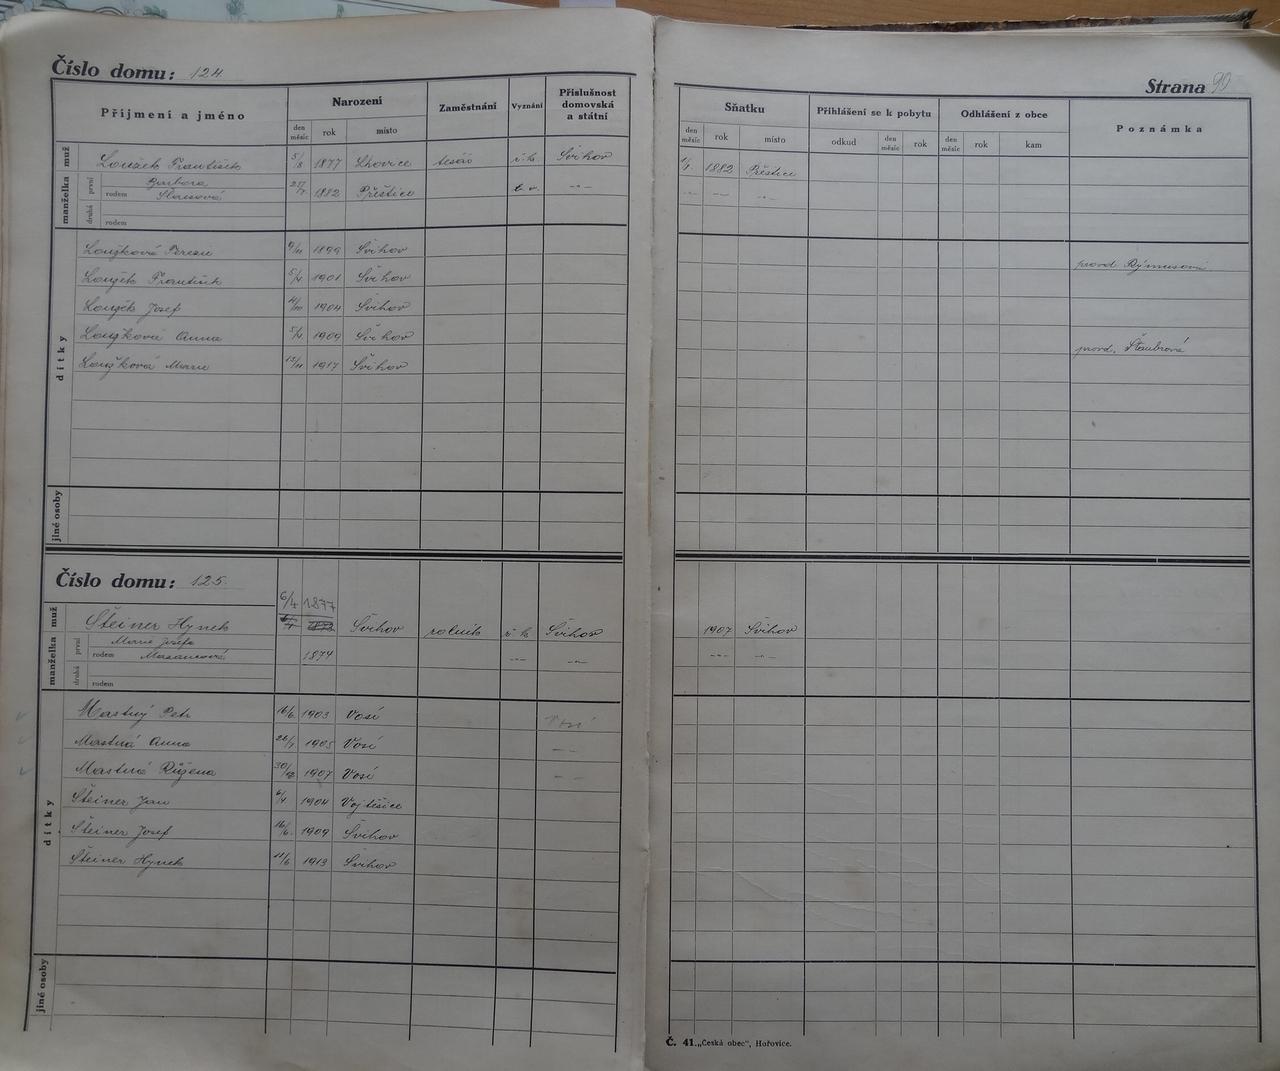 Číslo domu: 124
Strana 90
Příjmení a jméno Narození Zaměstnání Vyznání Příslušnost domovská a státní Sňatku Přihlášení se k pobytu Odhlášení z obce Poznámka
den měsíc rok místo den měsíc rok místo odkud den měsíc rok den měsíc rok kam
muž Loužek František 5/8 1877 Lhovice tesář ř. k. Švihov 1882 Přeštice
manželka první Barbora
rodem 1882 Přeštice -"- -"- -"- -"-
druhá rodem
dítky
Loužková Terezie 9/11 1899 Švihov provd. Rýmusová
Loužek František 5/4 1901 Švihov
Loužek Josef 4/10 1904 Švihov
Loužková Anna 5/4 1909 Švihov provd. Štaubrová
Loužková Marie 13/11 1917 Švihov
jiné osoby
Číslo domu: 125.
6/4 1877
muž Šteiner Hynek Švihov rolník ř. k. Švihov 1907 Švihov
manželka první Marie Josefa
rodem 1874 -"- -"- -"- -"-
druhá rodem
dítky
Mastný Petr 16/6 1903 Vosí Vosí
Mastná Anna 26/7 1905 Vosí -"-
Mastná Růžena 30/12 1907 Vosí -"-
Šteiner Jan 6/4 1904 Vojtěšice
Šteiner Josef 16/6 1909 Švihov
Šteiner Hynek 11/6 1913 Švihov
jiné osoby
Č. 41. „Česká obec", Hořovice.